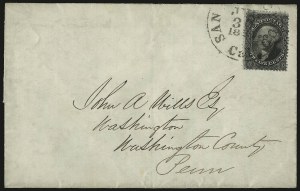 SAN
3
Ca
John A Wills Esq
Washington
Washington County
Penn